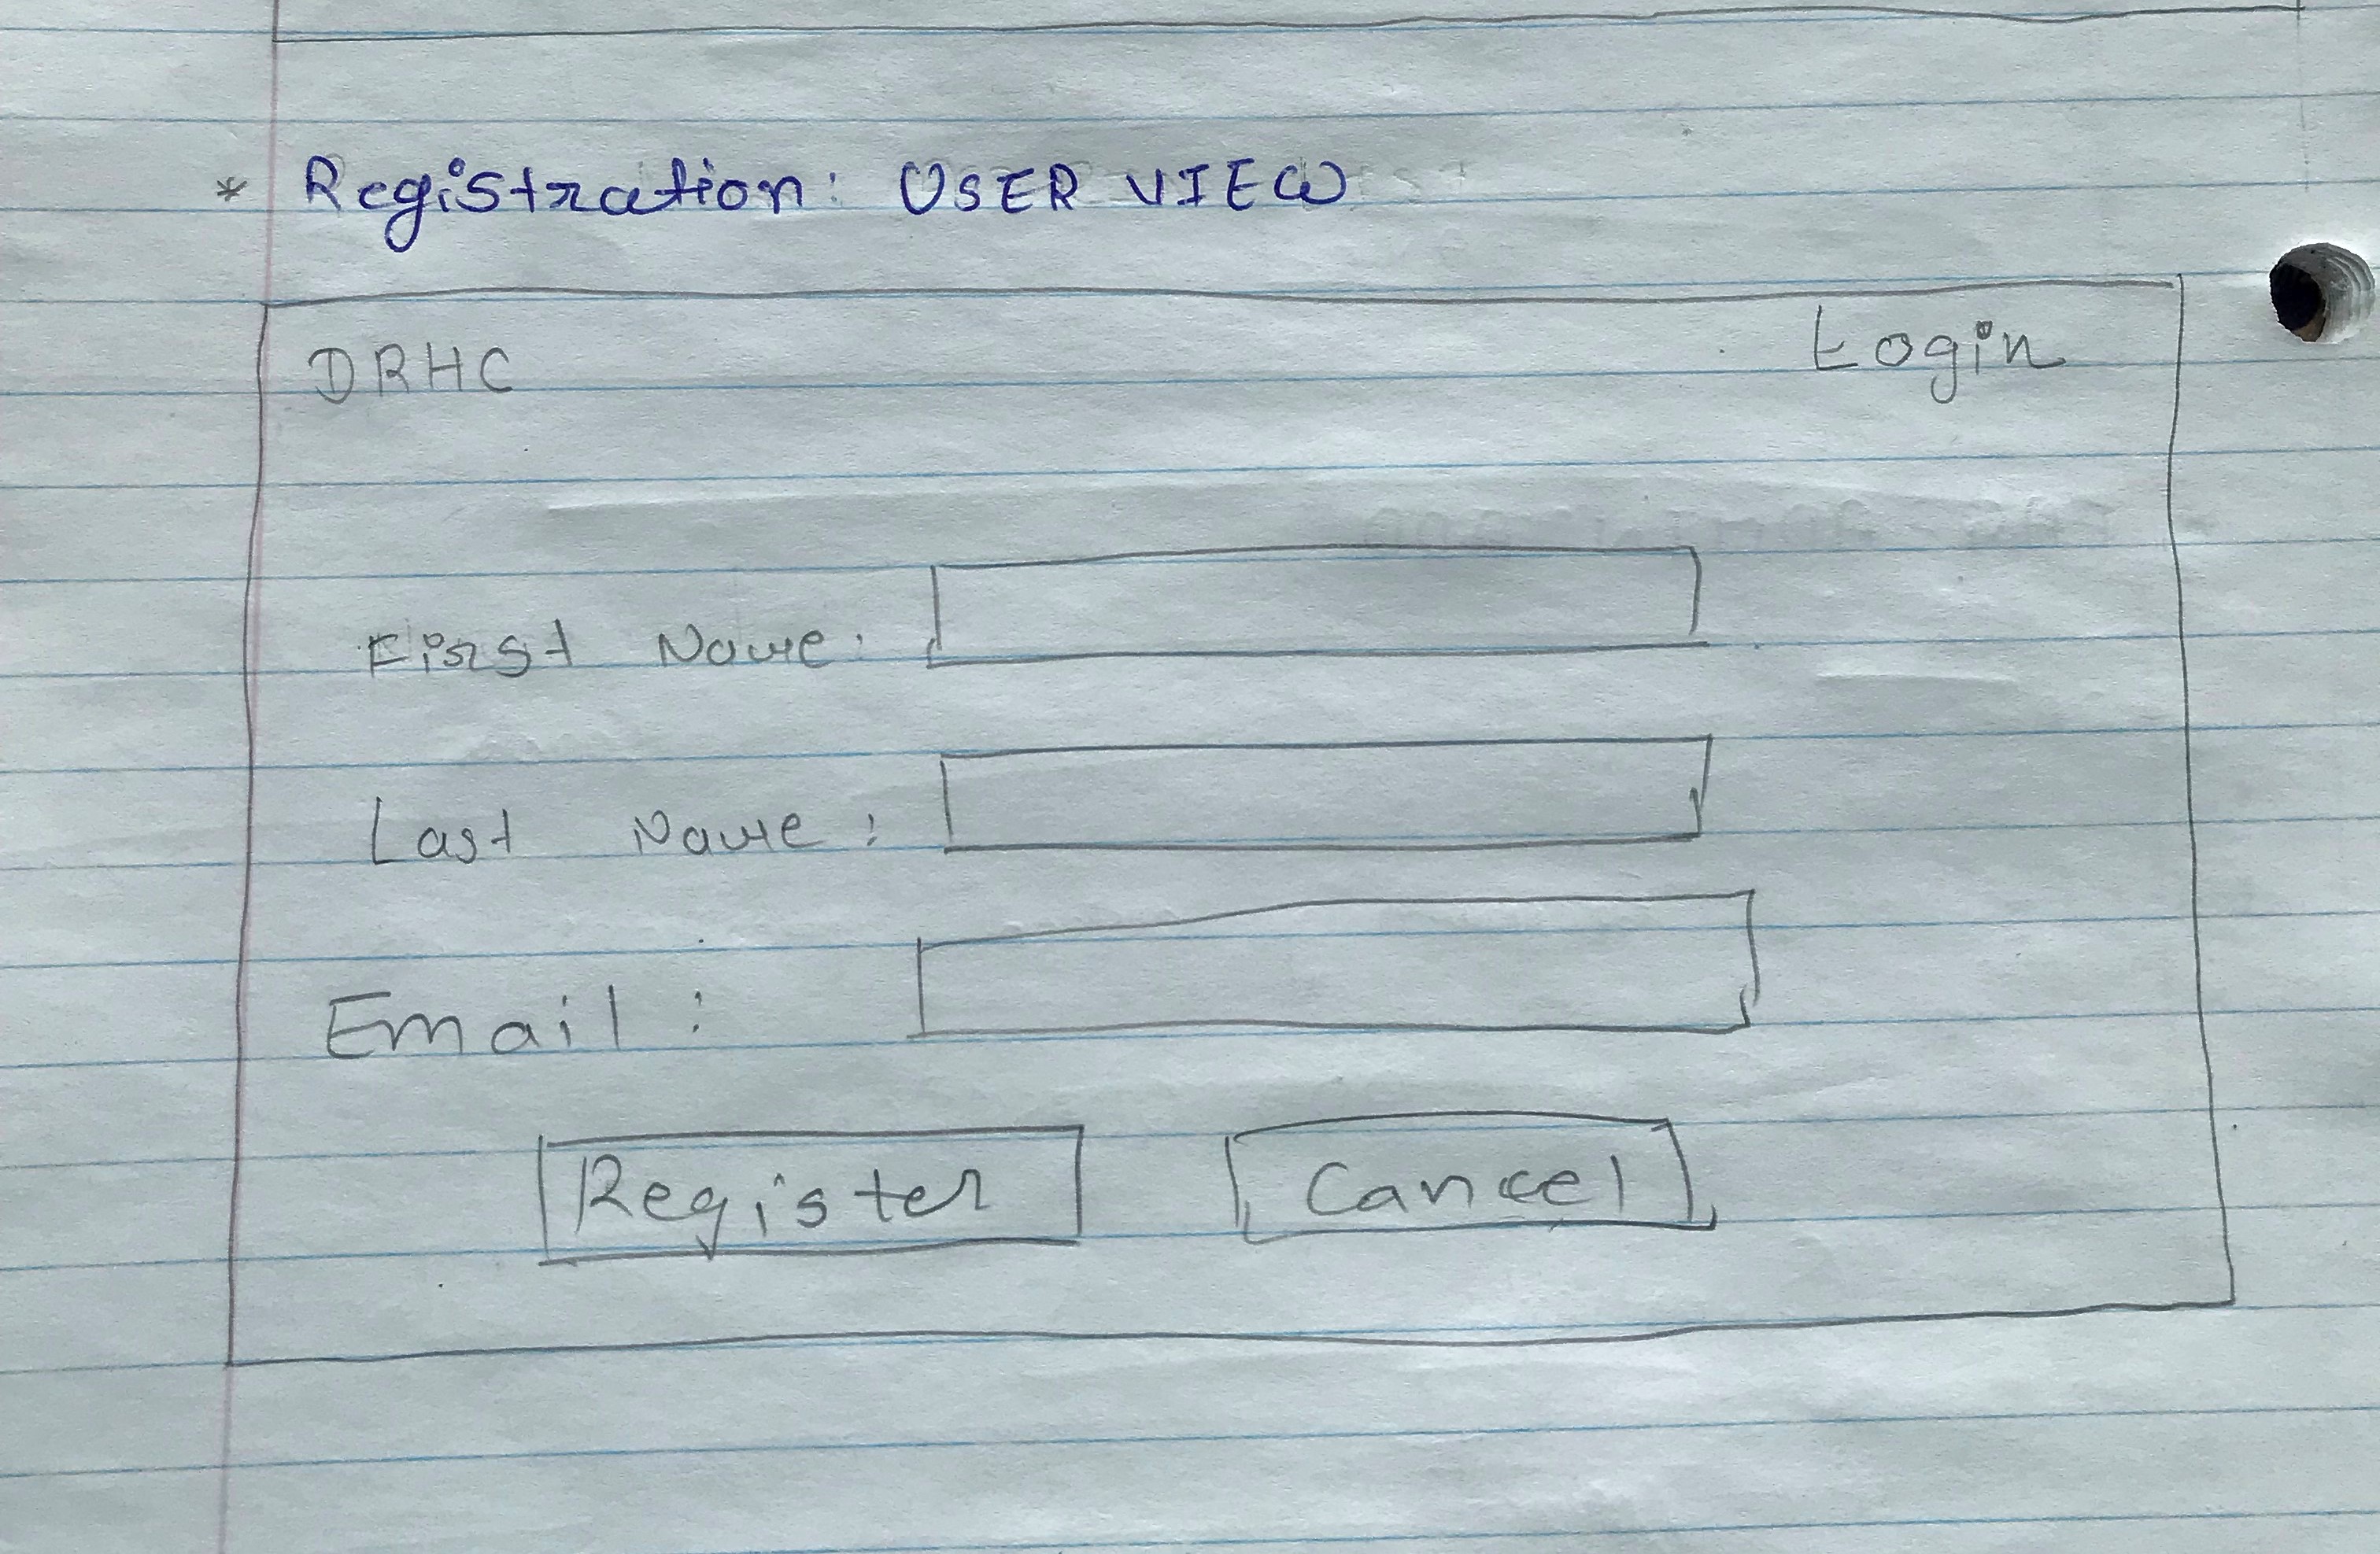 * Registration: USER VIEW
DRHC Login
First Name:
Last Name:
Email:
Register Cancel